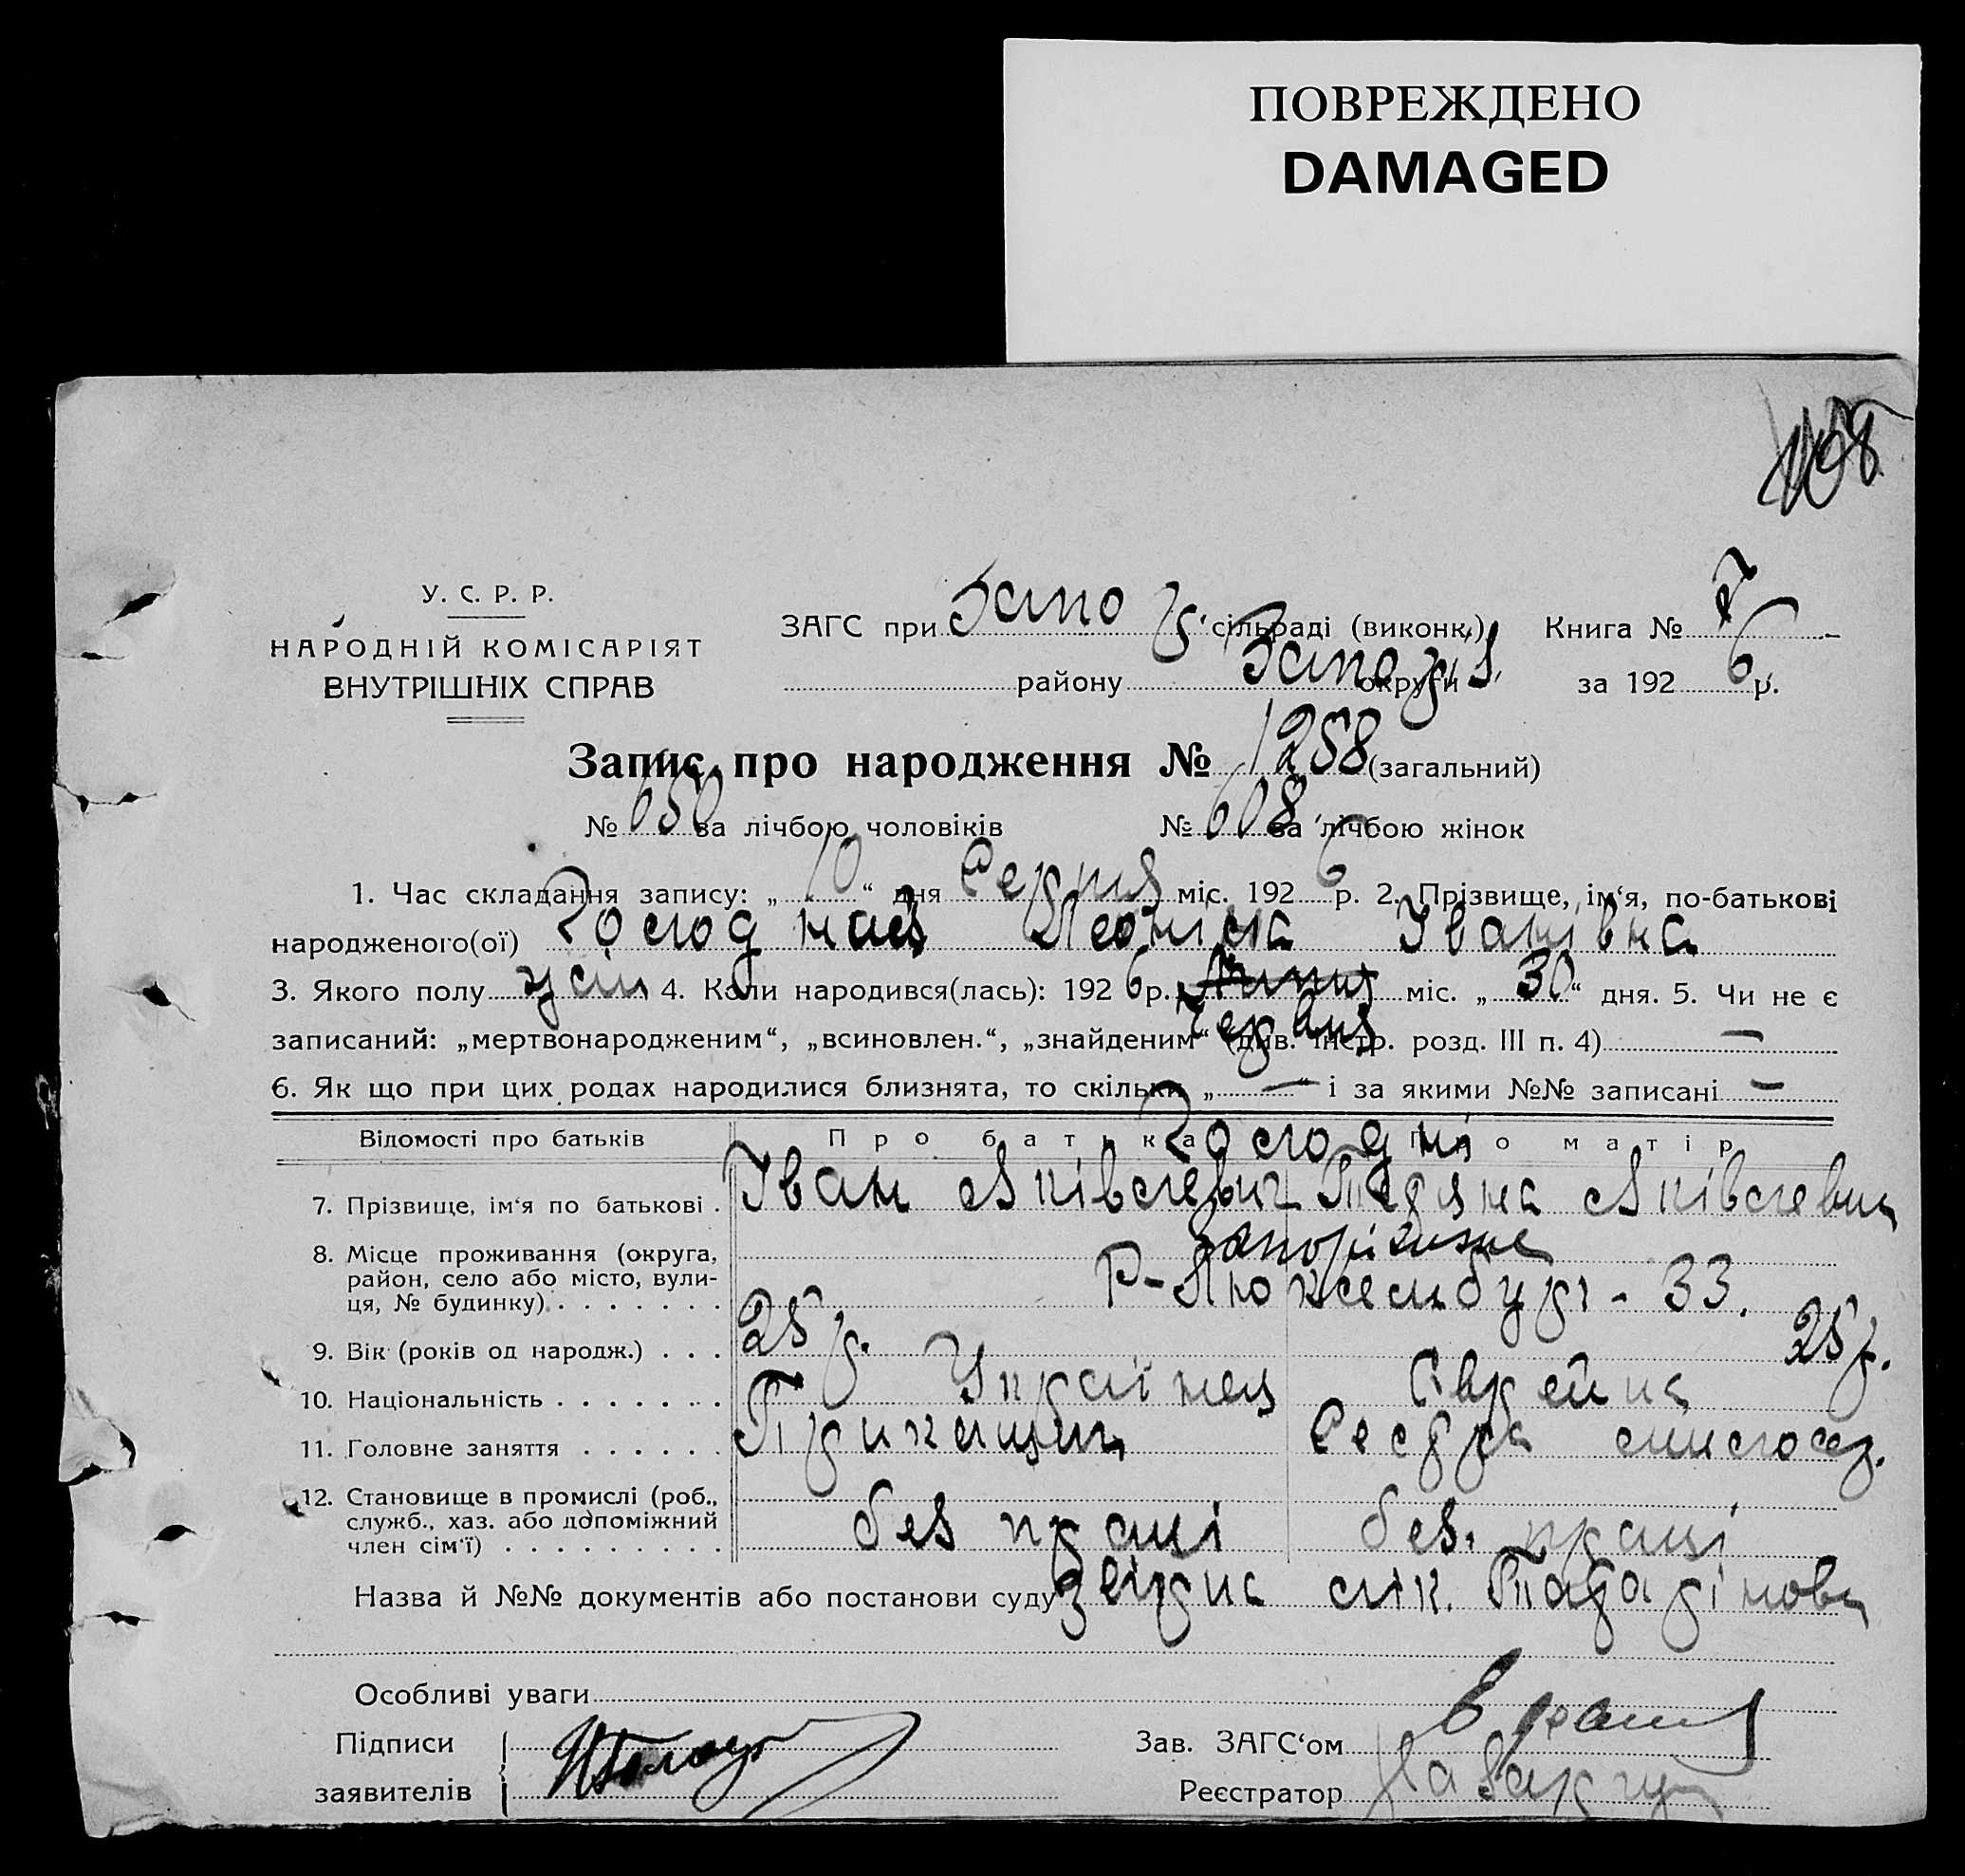 ПОВРЕЖДЕНО
DAMAGED
108
У. С. Р. Р.
НАРОДНІЙ КОМІСАРІЯТ
ВНУТРІШНІХ СПРАВ
ЗАГС при Запо сільраді (виконк.)
району округи
Книга № 7
за 1926 р.
Запис про народження № 1258 (загальний)
№ 650 за лічбою чоловіків № 608 за лічбою жінок
1. Час складання запису: „10“ дня Серпня міс. 1926 р. 2. Прізвище, ім‘я, по-батькові
народженого(ої) Леоніла Іванівна
3. Якого полу жін 4. Коли народився(лась): 1926 р. Липня міс. „30“ дня. 5. Чи не є
Червня
записаний: „мертвонародженим“, „всиновлен.“, „знайденим“ (див. інстр. розд. III п. 4) —
6. Як що при цих родах народилися близнята, то скільки „—“ і за якими №№ записані —
Відомості про батьків Про батька Про матір
7. Прізвище, ім‘я по батькові . Іван Яківлевич Тетяна Яківлевна
8. Місце проживання (округа, район, село або місто, вулиця, № будинку) . . . . . . . Запоріжжє
Р-Люксембург - 33.
9. Вік (років од народж.) . . . 25 р. 25 р.
10. Національність . . . . . . . Українец Еврейка
11. Головне заняття . . . . . . Прикащик Сестра
12. Становище в промислі (роб., служб., хаз. або допоміжний член сім‘ї) . . . . . . . . . без праці без. праці
Назва й №№ документів або постанови суду лік.
Особливі уваги
Підписи
заявителів
Зав. ЗАГС‘ом
Реєстратор